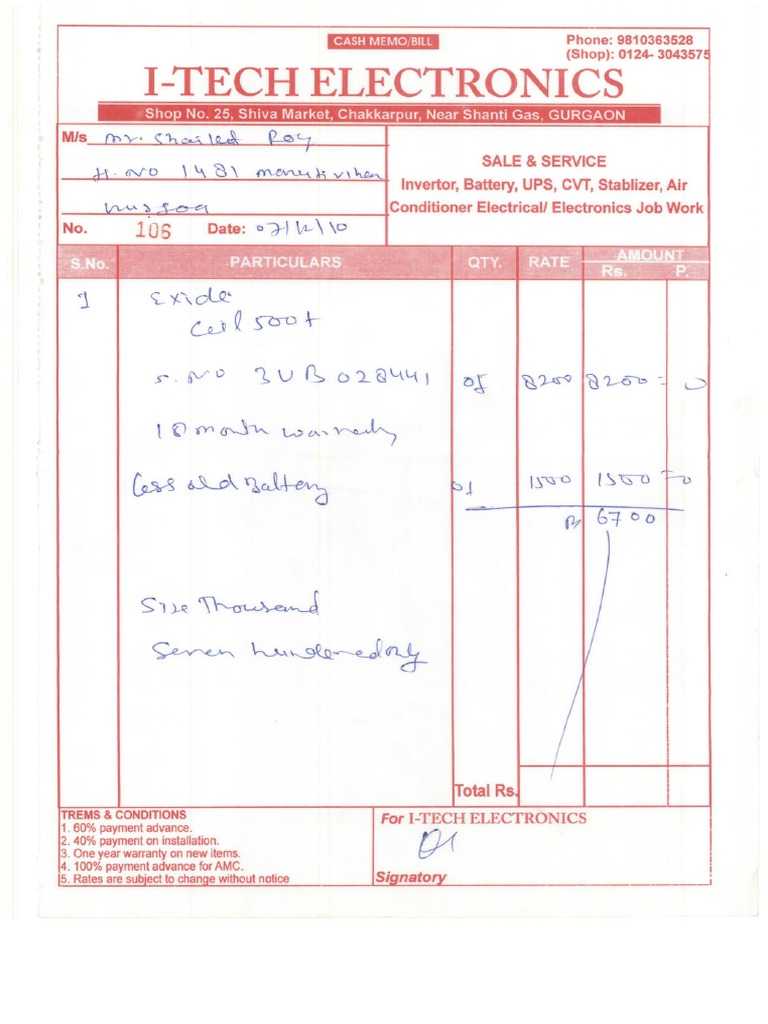 CASH MEMO/BILL
Phone: 9810363528
(Shop): 0124- 3043575
I-TECH ELECTRONICS
Shop No. 25, Shiva Market, Chakkarpur, Near Shanti Gas, GURGAON
M/s Mr. Roy
H. NO 1481
SALE & SERVICE
Invertor, Battery, UPS, CVT, Stablizer, Air
Conditioner Electrical/ Electronics Job Work
No. 106 Date: 07/12/10
S.No. PARTICULARS QTY. RATE AMOUNT
Rs. P.
1 Exide
500+
S. NO 3UB028441 01 8200 8200 = 0
18 month warrenty
Less old Battery 01 1500 1500 = 0
6700
Six Thousand
Seven hundered only
Total Rs.
TREMS & CONDITIONS
1. 60% payment advance.
2. 40% payment on installation.
3. One year warranty on new items.
4. 100% payment advance for AMC.
5. Rates are subject to change without notice
For I-TECH ELECTRONICS
Signatory